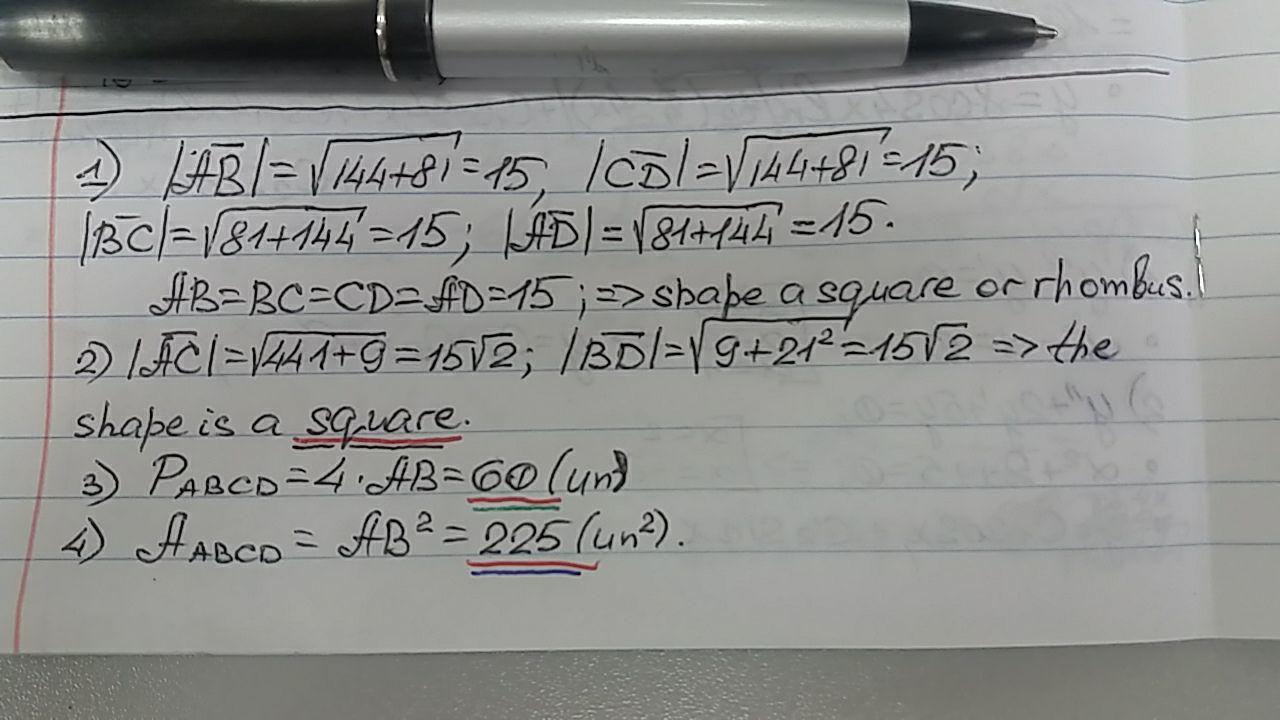 1) |AB̅| = √144+81 = 15, |CD̅| = √144+81 = 15;
|BC̅| = √81+144 = 15; |AD̅| = √81+144 = 15.
AB=BC=CD=AD=15; => shape a square or rhombus.
2) |AC̅| = √441+9 = 15√2; |BD̅| = √9+21² = 15√2 => the
shape is a square.
3) P_ABCD = 4·AB = 60 (un)
4) A_ABCD = AB² = 225 (un²).